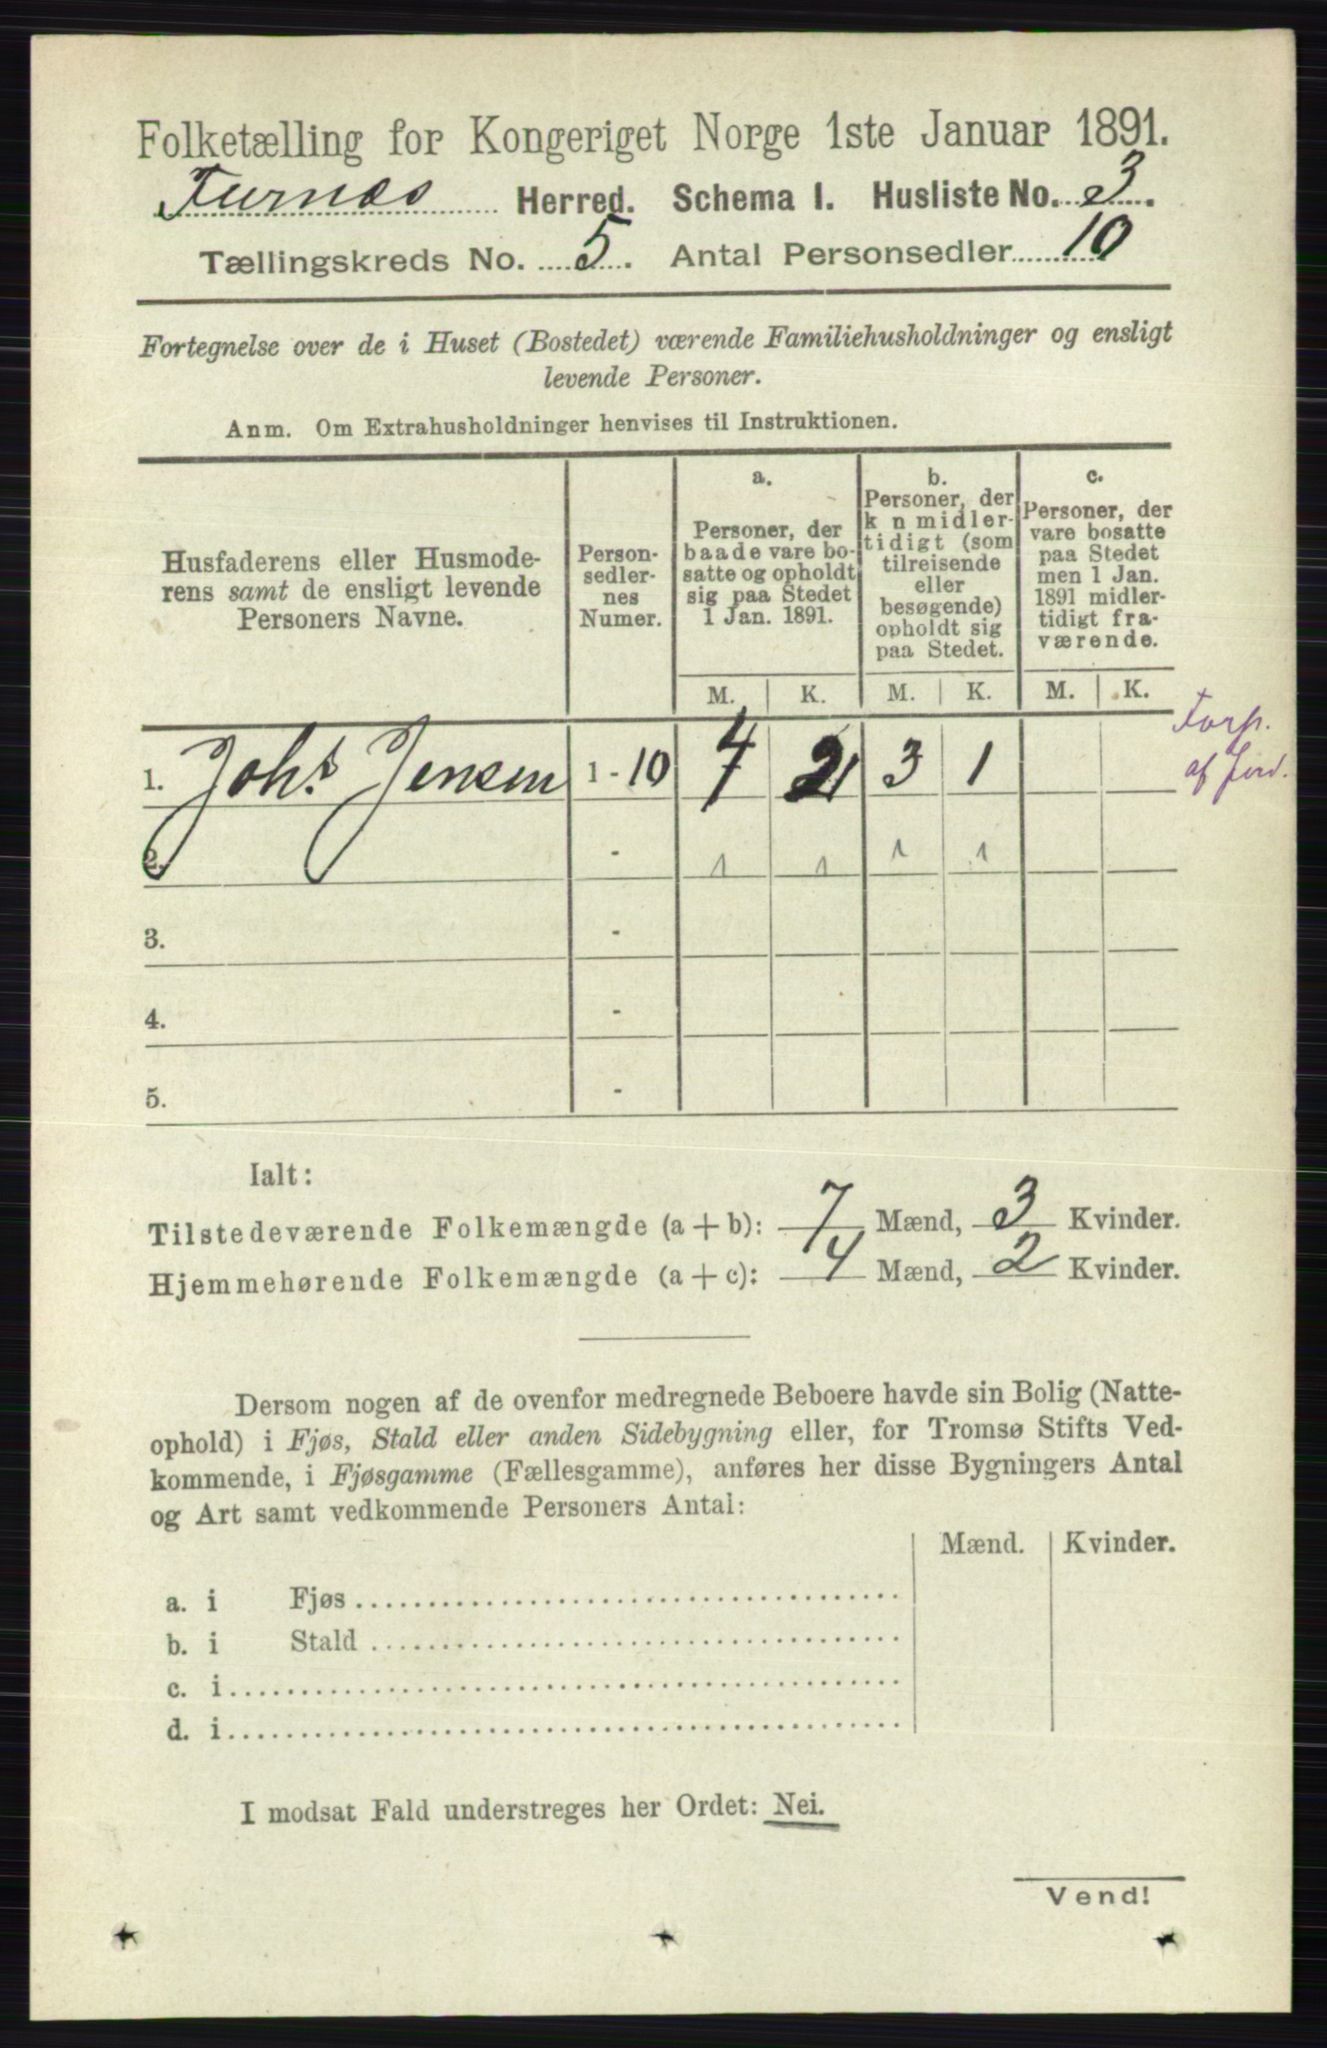 Folketælling for Kongeriget Norge 1ste Januar 1891.
Furnæs Herred. Schema I. Husliste No. 3.
Tællingskreds No. 5. Antal Personsedler 10
Fortegnelse over de i Huset (Bostedet) værende Familiehusholdninger og ensligt
levende Personer.
Anm. Om Extrahusholdninger henvises til Instruktionen.
Husfaderens eller Husmode-
rens samt de ensligt levende
Personers Navne.
Person-
sedler-
nes
Numer.
a.
Personer, der
baade vare bo-
satte og opholdt
sig paa Stedet
1 Jan. 1891.
b.
Personer, der
k n midler-
tidigt (som
tilreisende
eller
besøgende)
opholdt sig
paa Stedet.
c.
Personer, der
vare bosatte
paa Stedet
men 1 Jan.
1891 midler-
tidigt fra-
værende.
M. K. M. K. M. K.
1. Johs Jensen 1 - 10 4 2 3 1
Forp.
af Jord.
2. - 1 1 1 1
3. -
4. -
5. -
Ialt:
Tilstedeværende Folkemængde (a + b): 7 Mænd, 3 Kvinder.
Hjemmehørende Folkemængde (a + c): 4 Mænd, 2 Kvinder.
Dersom nogen af de ovenfor medregnede Beboere havde sin Bolig (Natte-
ophold) i Fjøs, Stald eller anden Sidebygning eller, for Tromsø Stifts Ved-
kommende, i Fjøsgamme (Fællesgamme), anføres her disse Bygningers Antal
og Art samt vedkommende Personers Antal:
Mænd. Kvinder.
a. i Fjøs
b. i Stald
c. i
d. i
I modsat Fald understreges her Ordet: Nei.
Vend!